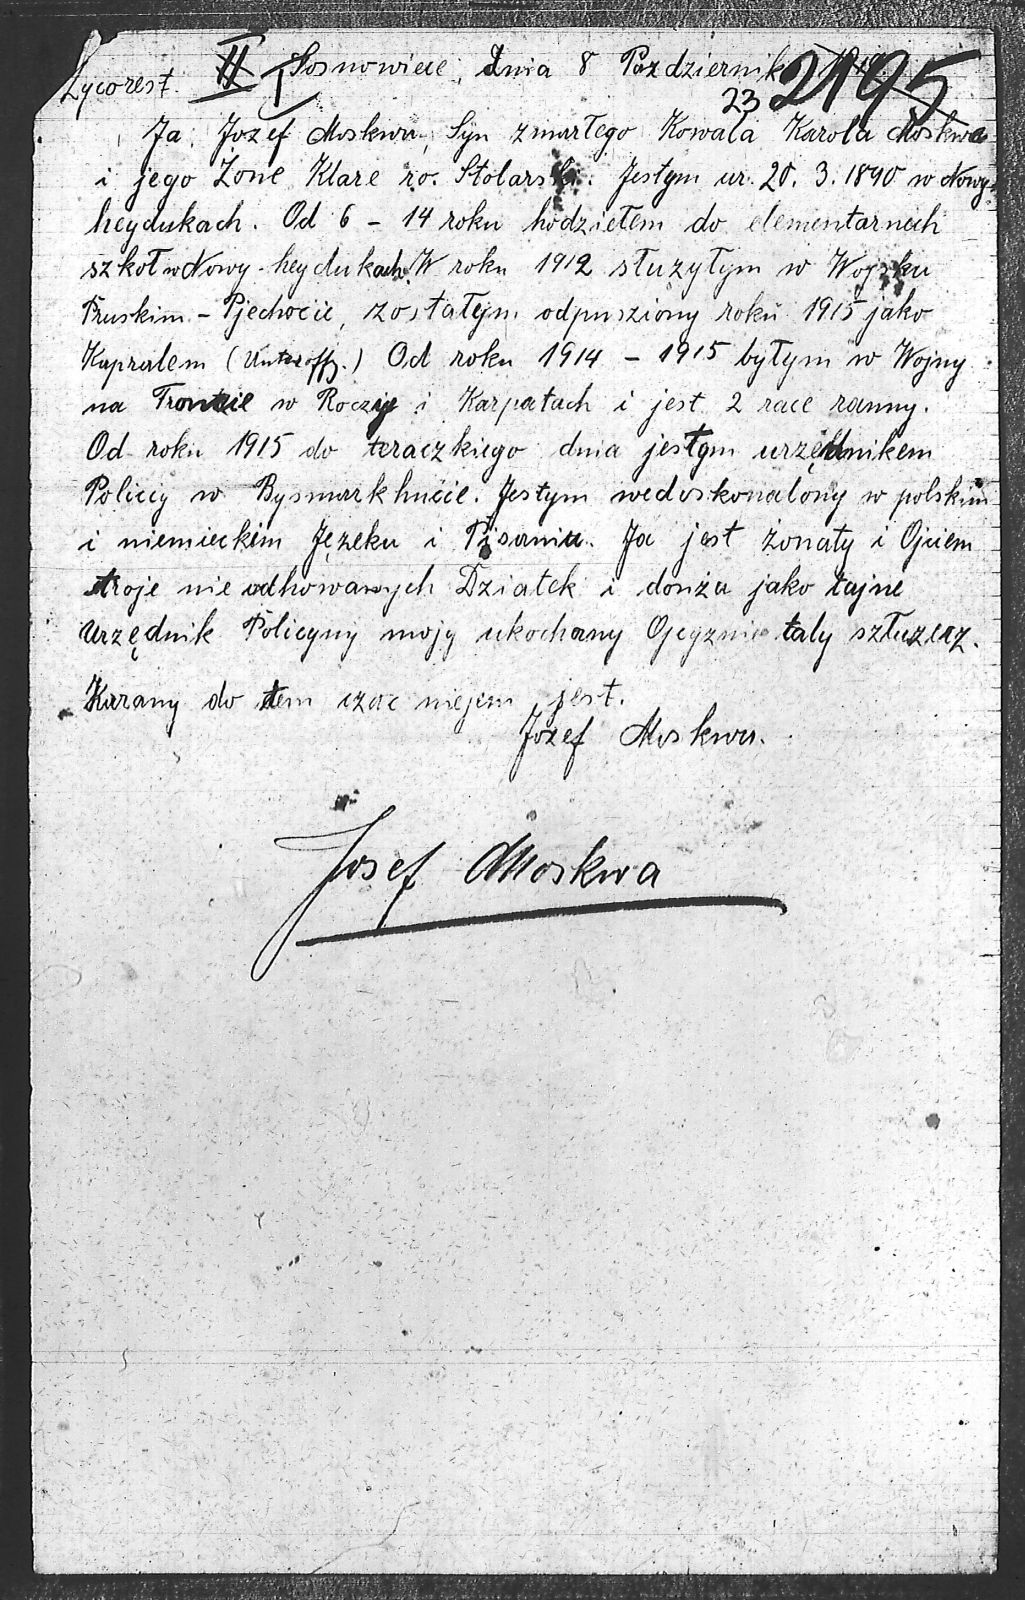 Życorest. II I Sosnowiece, dnia 8 Pazdziernik 1919.
23 2195
Ja, Jozef Moskwa, Syn zmarłego Kowala Karola Moskwa
i jego Zone Klare ro. Stolarski. Jestym ur. 20. 3. 1890 w Nowy-
heydukach. Od 6 – 14 roku hodziełem do elementarnech
szkoł w Nowy-heydukach. W roku 1912 służyłym w Wojsku
Pruskim – Pjechocie, zostałejm odpusziony roku 1915 jako
Kapralem (Unteroffz.) Od roku 1914 – 1915 byłym w Wojny
na Froncie w Roczyi i Karpatach i jest 2 race ranny.
Od roku 1915 do teraczkiego dnia jestym urzędnikem
Policiy w Bysmarkhucie. Jestym wedoskonalony w polskim
i niemieckim Języku i Pisaniu. Ja jest żonaty i Ojciem
troje nie odhowanych Dziatek i donża jako tajne
urzędnik Policyny moją ukochany Ojcyznie taly sztuzerz.
Karany do tem czac niejem jest.
Jozef Moskwa.
Josef Moskwa